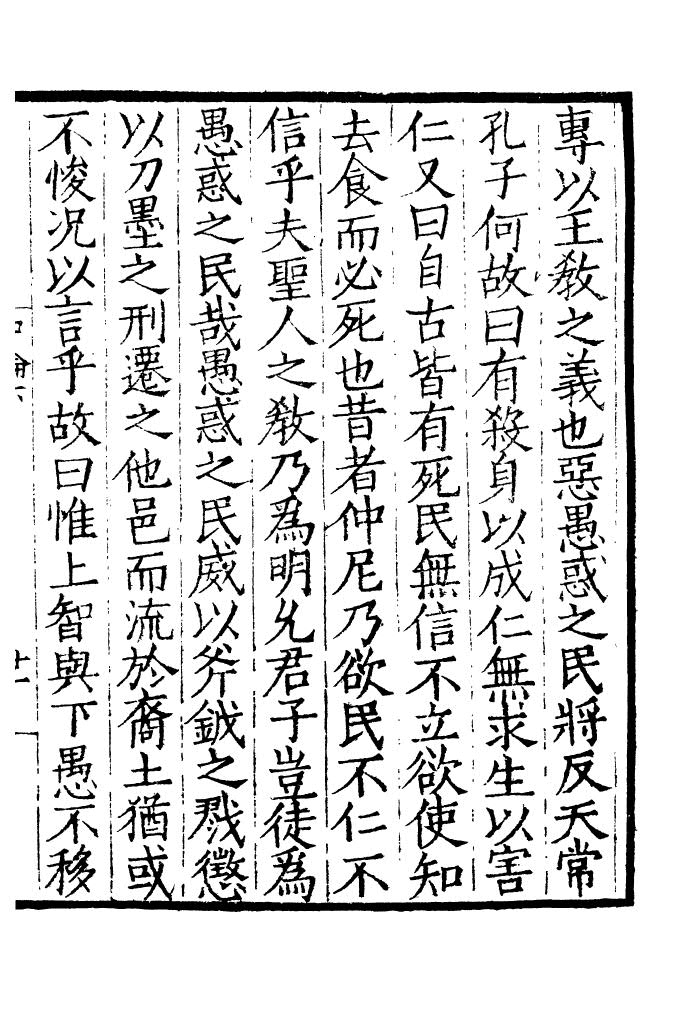 專以王敎之義也惡愚惑之民將反天常
孔子何故曰有殺身以成仁無求生以害
仁又曰自古皆有死民無信不立欲使知
去食而必死也昔者仲尼乃欲民不仁不
信乎夫聖人之敎乃爲明允君子豈徒爲
愚惑之民哉愚惑之民威以斧鉞之戮懲
以刀墨之刑遷之他邑而流於裔土猶或
不悛况以言乎故曰惟上智與下愚不移